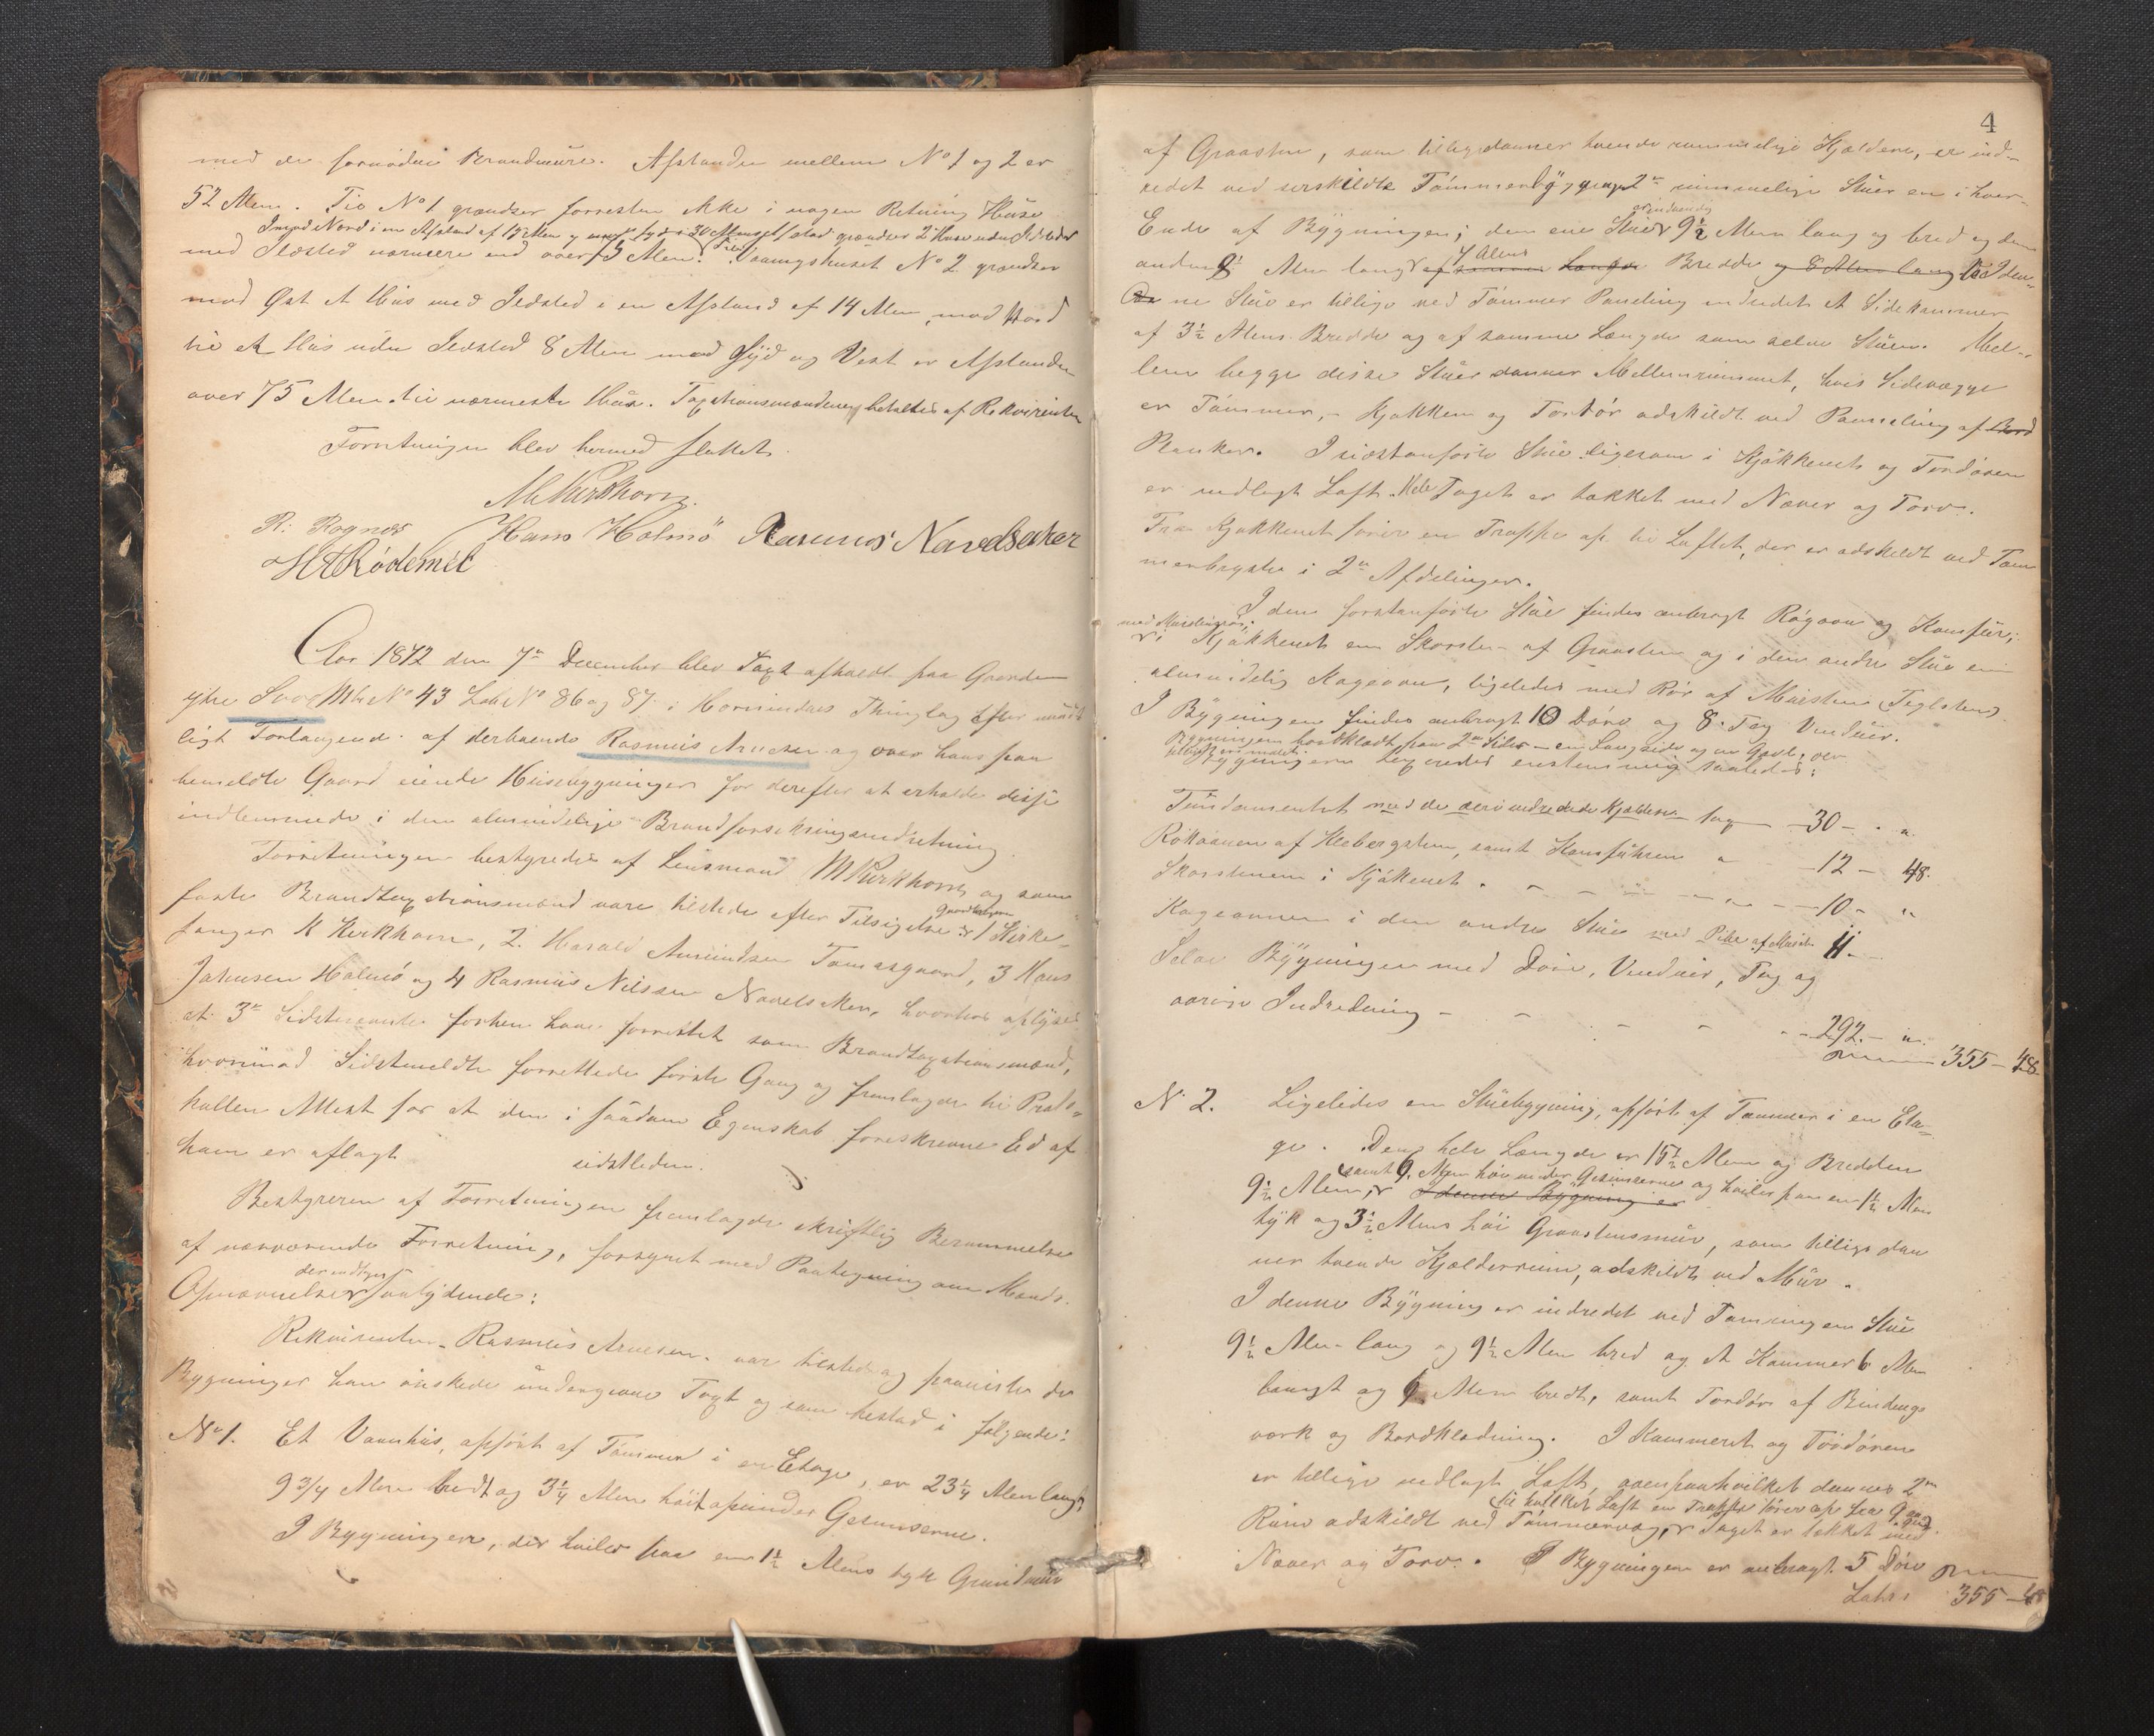 med de fornødne Brandmure. Afstanden mellem No 1 og 2 er
52 Alen. Til No 1 grændser forresten ikke i nogen Retning Huse
Imod Nord i en Afstand af 19 Alen og mod Syd i 30 Alens Afstand grændser 2 Huse uden Ildsted
med Ildsted nærmere end over 75 Alen. Til Vaaningshuset No 2 grændser
mod Øst et Hus med Ildsted i en Afstand af 14 Alen, mod Nord
til et Hus uden Ildsted 8 Alen mod Syd og Vest er Afstanden
over 75 Alen til nærmeste Hus. Taxationsmændene betaltes af Rekvirenten
Forretningen blev hermed sluttet.
M Kirkhorn.
R. Rognes Hans Holmö Rasmus Navelsaker
H Rødemel
Aar 1872 den 7de December blev Taxt afholdt paa Gaarden
ytre Svor Mtr No 43 Løb No 86 og 87 i Hornindals Thinglag efter mundt
ligt Forlangende af derboende Rasmus Arnesen og over hans paa
bemeldte Gaard eiende Huusbygninger for derefter at erholde disse
indlemmede i den almindelige Brandforsikringsindretning.
Forretningen bestyredes af Lensmand M Kirkhorn og som
faste Brandtaxationsmænd vare tilstede efter Tilsigelse Gaardbrugerne 1 Kirke-
sanger K Kirkhorn, 2. Harald Amundsen Tomasgaard, 3 Hans
Johnsen Holmö og 4 Rasmus Nilsen Navelsaker, hvorhos oplyses
at 3de Sidstnævnte forhen have forrettet som Brandtaxationsmænd,
hvorimod Sidstmeldte forrettede første Gang og fremlagde til Proto-
kollen Attest for at den i saadan Egenskab foreskrevne Ed af
ham er aflagt sidstleden.
Bestyreren af Forretningen fremlagde skriftlig Berammelse
af nærværende Forretning, forsynet med Paategning om Mænds
Opnævnelse der indtages saalydende:
Rekvirenten Rasmus Arnesen var tilstede og paaviste de
Bygninger han ønskede undergivne Taxt og som bestod i følgende:
No 1. Et Vaanhus, opført af Tømmer i en Etage, er 23 1/4 Alen langt,
9 3/4 Alen bredt og 3 1/4 Alen høit op under Gesimserne.
I Bygningen, der hviler paa en 1 1/2 Alens tyk Grundmur
4
af Graasten, som tillige danner tvende rummelige Kjældere, er ind-
redet ved særskildte Tømmerbygninger 2de rummelige Stuer en i hver
Ende af Bygningen; den ene Stue er indvendig 9 1/2 Alen lang og bred og den
anden 8 1/2 Alen lang 7 Alens af samme Længde Bredde og 8 Alen lang I den-
ne Stue er tillige ved Tømmer Paneling indredet et Sidekammer
af 3 1/2 Alens Bredde og af samme Længde som selve Stuen. Mel-
lem begge disse Stuer danner Mellemrummet, hvis Sidevægge
er Tømmer, Kjøkken og Fordør adskildt ved Panneling af Bord
Planker. I sidstanførte Stue ligesom i Kjøkkenet og Fordøren
er indlagt Loft. Hele Taget er tækket med Næver og Torv.
Fra Kjøkkenet fører en Trappe op til Loftet, der er adskildt ved Tøm
merbryst i 2de Afdelinger.
I den førstanførte Stue findes anbragt Røgovn og Komfur;
med Murstenspibe; i Kjøkkenet en Skorsten af Graasten og i den anden Stue en
almindelig Kageovn, ligeledes med Rør af Mursten (Teglsten)
I Bygningen findes anbragt 10 Døre og 8 Fag Vinduer.
Bygningen bordklædt paa 2de Sider en Langside og en Gavl; der
tillige er malet.
Bygningerne taxeredes enstemmig saaledes:
Fundamentet med de deri indredede Kjældere for 30 - "
Røkovnen af Klebergsten, samt Komfuhren " 12 - 48.
Skorstenen i Kjøkenet " 10 - "
Kageovnen i den anden Stue med Pibe af Mursten 11 -
Selve Bygningen med Døre, Vinduer, Tag og
øvrige Indredning - - - - 292 - "
355 - 48
N 2. Ligeledes en Stuebygning, opført af Tømmer i en Eta-
ge. Dens hele Længde er 15 1/2 Alen og Bredden
9 1/2 Alen, samt 6 Alen høi under Gesimserne og hviler paa en 1 1/2 Alen
I denne Bygning er
tyk og 3 1/2 Alens høi Graastensmur, som tillige dan
ner tvende Kjælderrum, adskildt ved Mur.
I denne Bygning er indredet ved Tømring en Stue
9 1/2 Alen lang og 9 1/2 Alen bred og et Kammer 6 Alen
langt og 6 Alen bredt, samt Fordør af Bindings
værk og Bordklædning. I Kammeret og Fordøren
er tillige indlagt Loft, ovenpaa hvilket dannes 2de
til hvilket Loft en Trappe fører op fra Gang
Rum adskildt ved Tømmervæg, Taget er tækket med
Næver og Torv. I Bygningen er anbragt 5 Døre
Latus 355 - 48